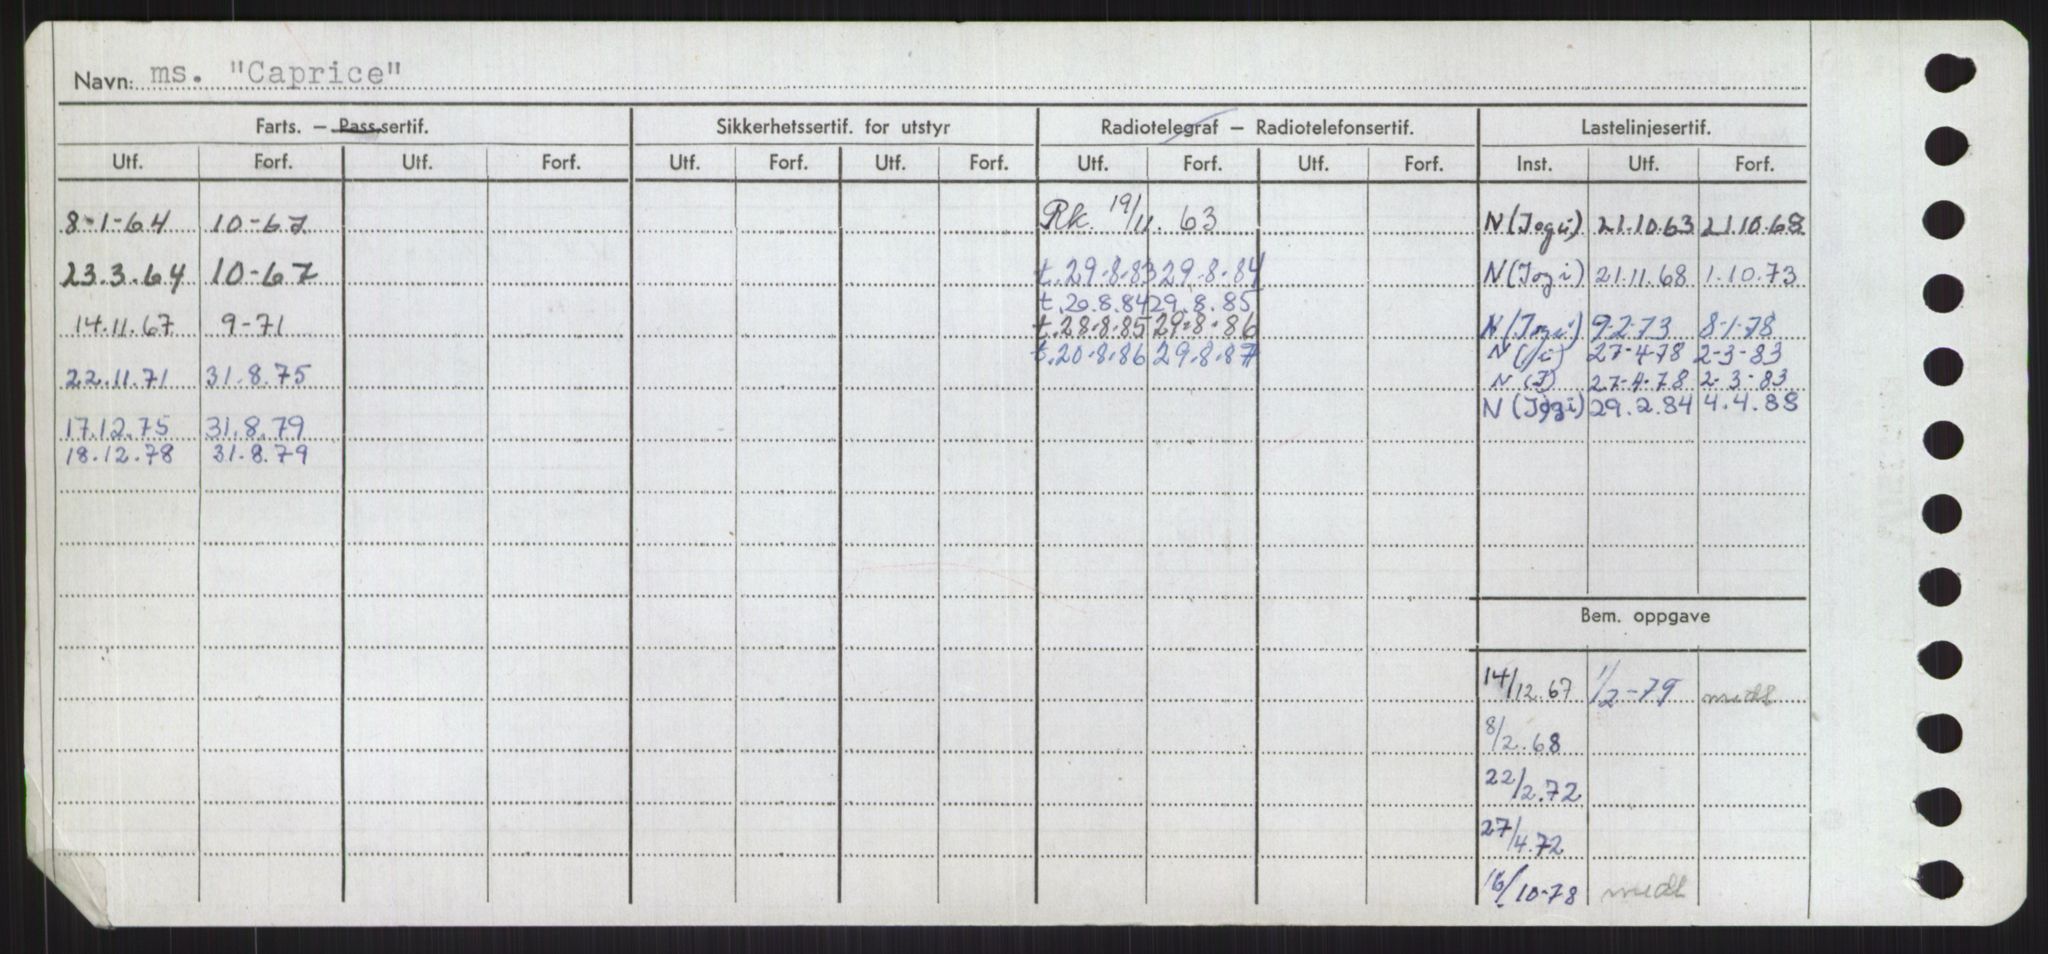 Navn: ms. "Caprice"
Farts. — Pass.sertif. Sikkerhetssertif. for utstyr Radiotelegraf — Radiotelefonsertif. Lastelinjesertif.
Utf. Forf. Utf. Forf. Utf. Forf. Utf. Forf. Utf. Forf. Utf. Forf. Inst. Utf. Forf.
8-1-64 10-67 Rk. 19/11. 63 N (Jogi) 21.10.63 21.10.68
23.3.64 10-67 t.29-8-83 29-8-84 N (Jogi) 21.11.68 1.10.73
t.20.8.84 29.8.85
14.11.67 9-71 t.28-8-85 29-8-86 N (Jogi) 9-2-73 8-1-78
t.20-8-86 29.8.87 N 27-4-78 2-3-83
22.11.71 31.8.75 N (J) 27-4-78 2-3-83
N (Jogi) 29.2.84 4.4.88
17.12.75 31.8.79
18.12.78 31.8.79
Bem. oppgave
14/12.67 1/2-79 medl
8/2.68
22/2.72
27/4.72
16/10-78 medl